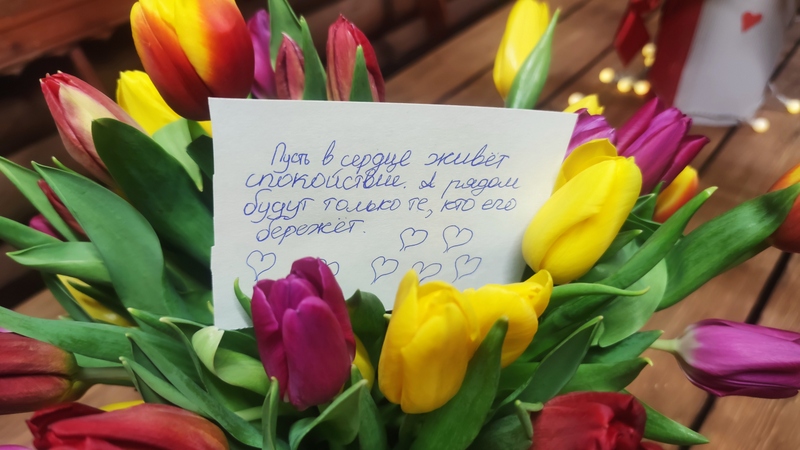 Пусть в сердце живёт
спокойствие. А рядом
будут только те, кто его
бережёт.